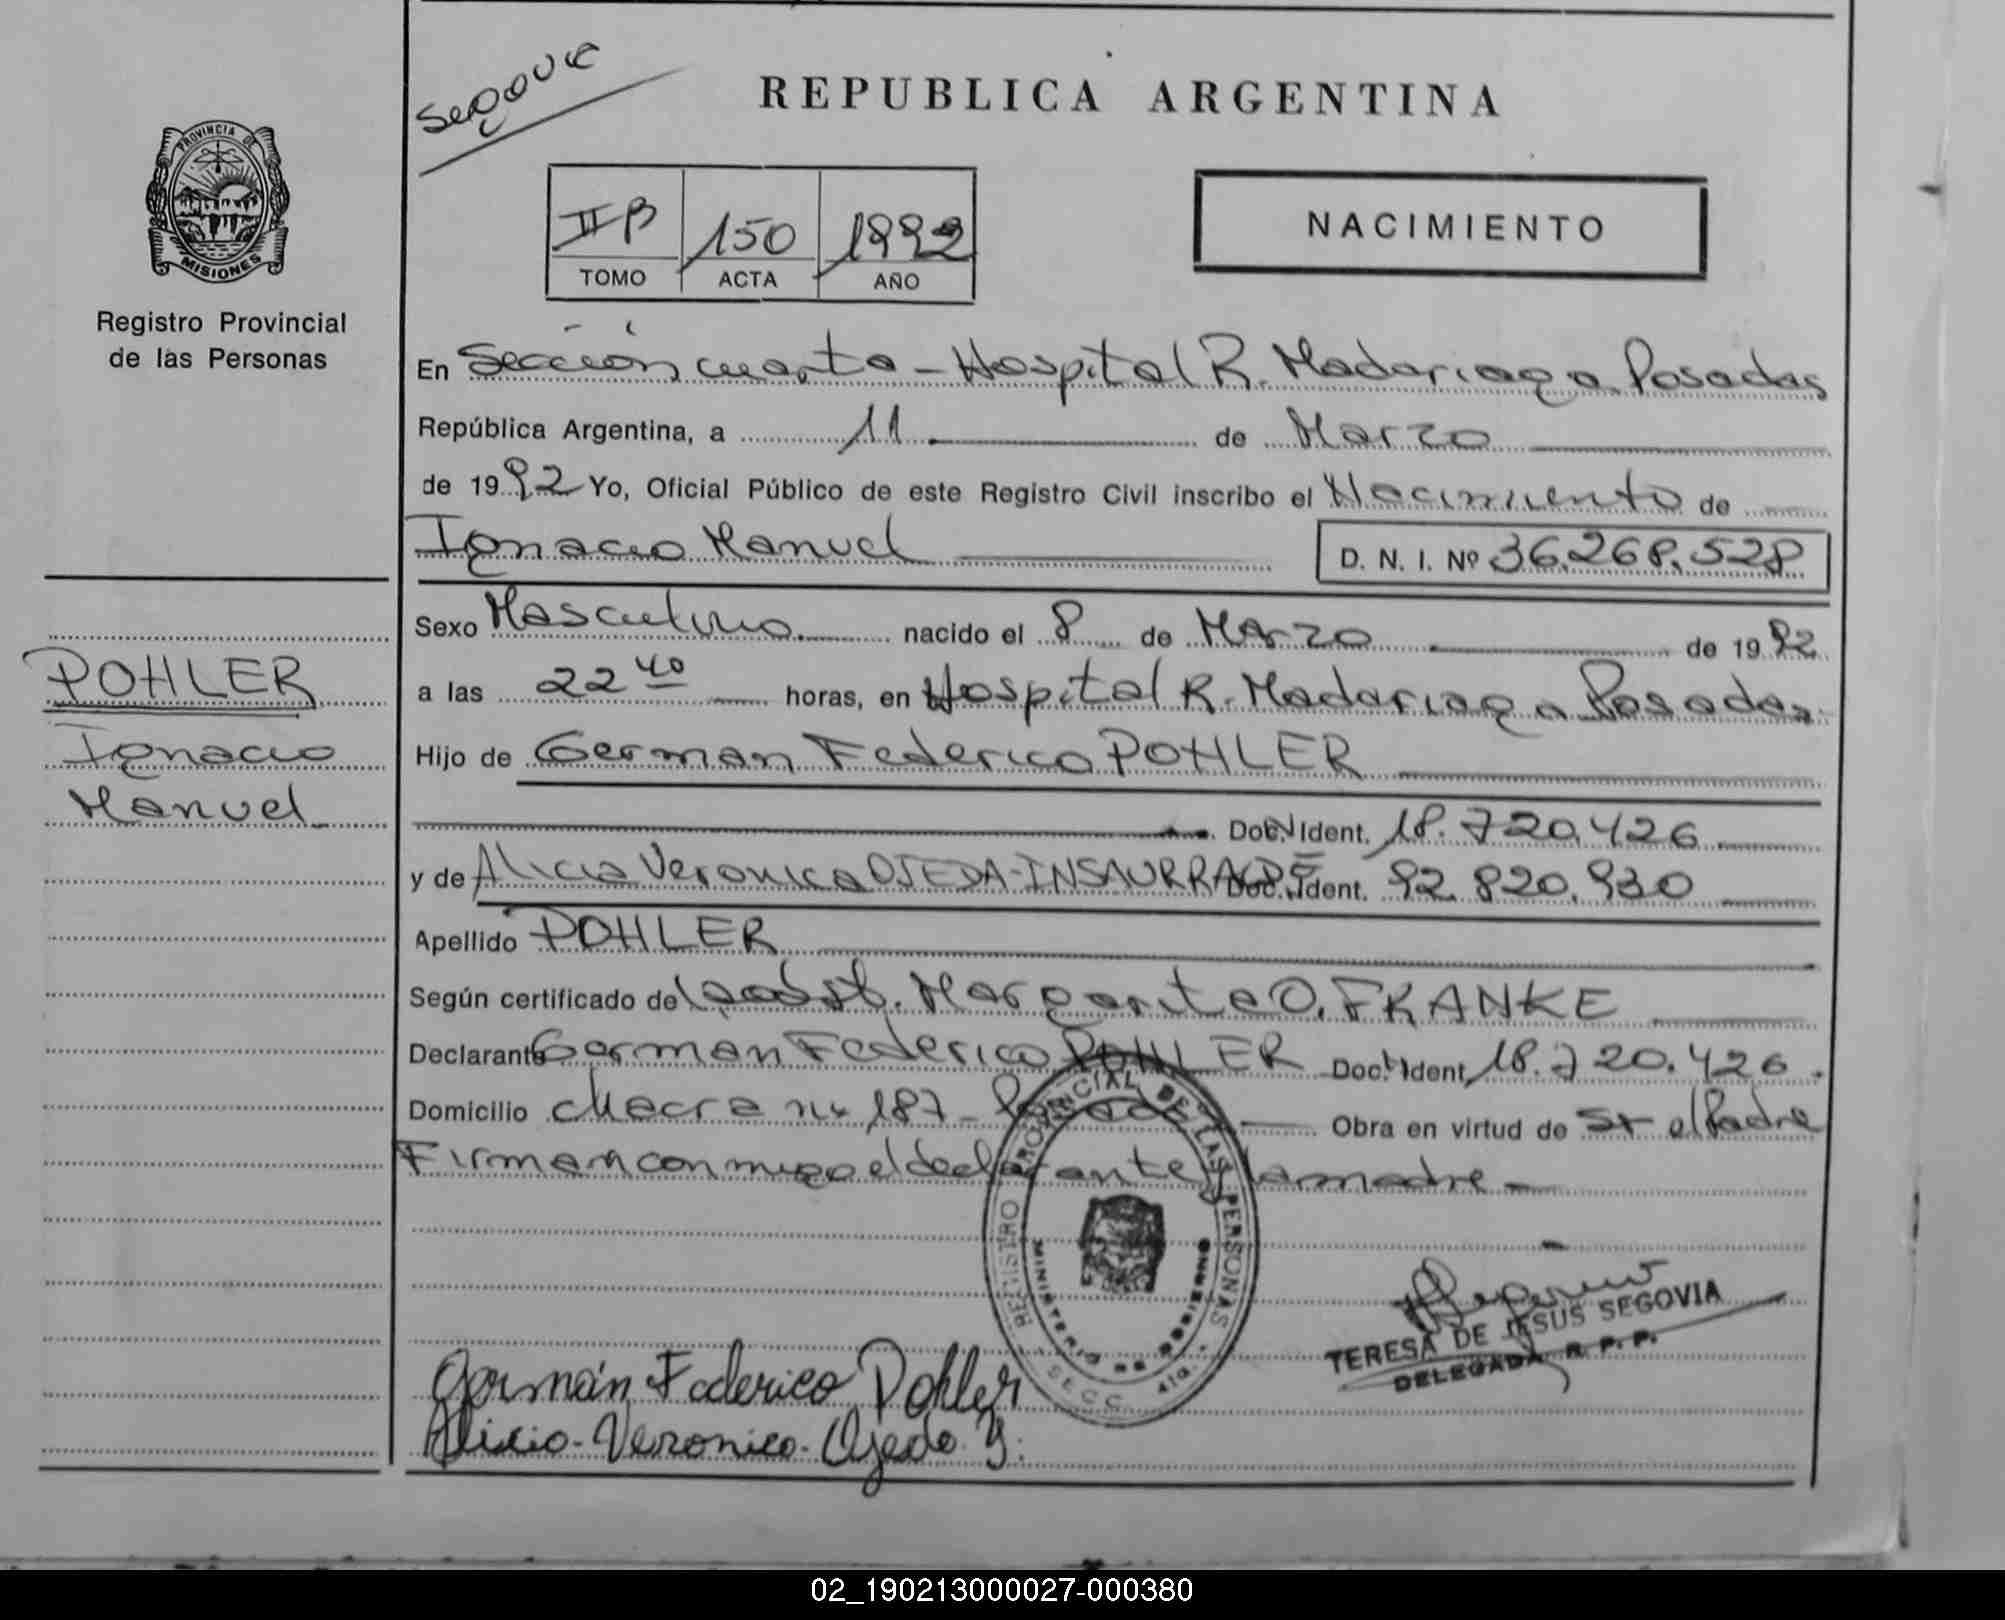 Segovia
REPUBLICA ARGENTINA
PROVINCIA DE
MISIONES
Registro Provincial
de las Personas
II B 150 1992
TOMO ACTA AÑO
NACIMIENTO
En Sección cuarta - Hospital R. Madariaga Posadas
República Argentina, a 11 de Marzo
de 1992 Yo, Oficial Público de este Registro Civil inscribo el Nacimiento de
Ignacio Manuel D. N. I. Nº 36.268.528
Sexo Masculino nacido el 8 de Marzo de 1992
a las 22 40 horas, en Hospital R. Madariaga Posadas
Hijo de German Federico POHLER
Doc. Ident. 18.720.426
y de Alicia Veronica OJEDA-INSAURRALDE Doc. Ident. 92.820.930
Apellido POHLER
Según certificado de Margarita O. FRANKE
Declarante German Federico POHLER Doc. Ident. 18.720.426.
Domicilio chacra nº 187 - Posadas Obra en virtud de ser el Padre
Firman conmigo el declarante y la madre
POHLER
Ignacio
Manuel
REGISTRO PROVINCIAL DE LAS PERSONAS
MINISTERIO DE GOBIERNO
SECC. 4ta.
TERESA DE JESUS SEGOVIA
DELEGADA R. P. P.
Germán Federico Pohler
Alicia-Veronica-Ojeda Y.
02_190213000027-000380